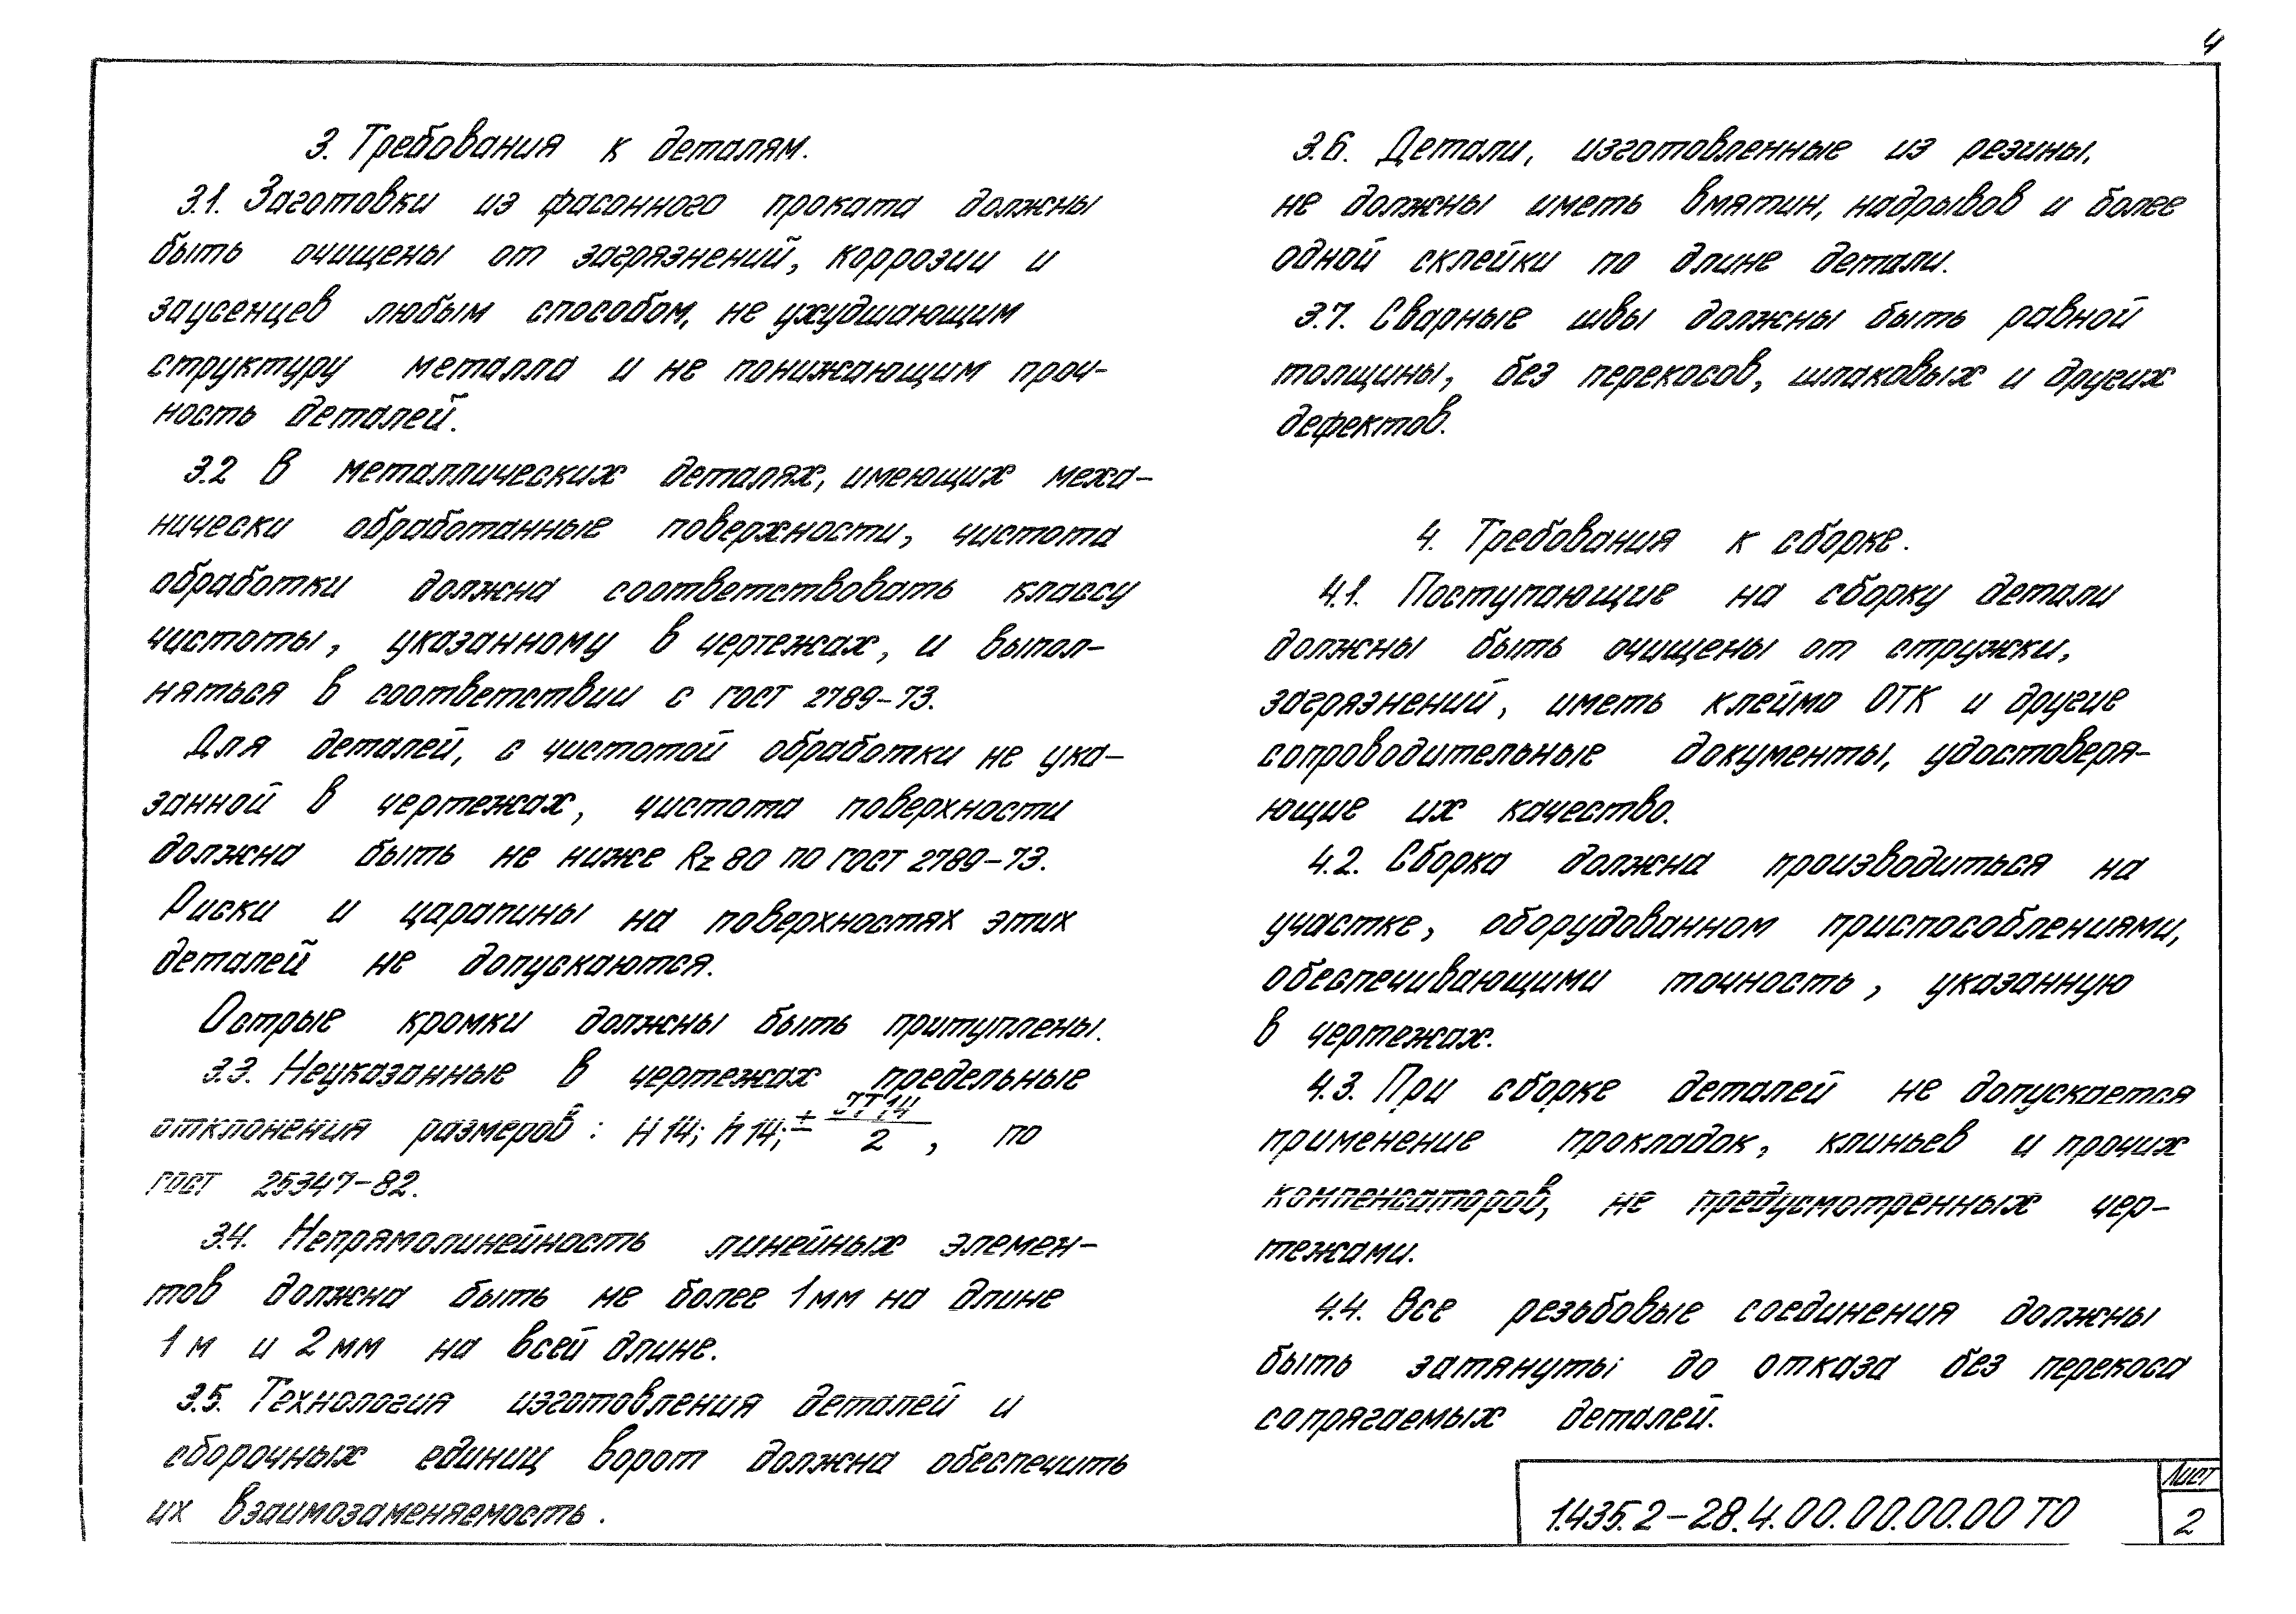 4
3. Требования к деталям.
3.1. Заготовки из фасонного проката должны
быть очищены от загрязнений, коррозии и
заусенцев любым способом, не ухудшающим
структуру металла и не понижающим проч-
ность деталей.
3.2 В металлических деталях, имеющих меха-
нически обработанные поверхности, чистота
обработки должна соответствовать классу
чистоты, указанному в чертежах, и выпол-
няться в соответствии с ГОСТ 2789-73.
Для деталей, с чистотой обработки не ука-
занной в чертежах, чистота поверхности
должна быть не ниже Rz 80 по ГОСТ 2789-73.
Риски и царапины на поверхностях этих
деталей не допускаются.
Острые кромки должны быть притуплены.
3.3. Неуказанные в чертежах предельные
отклонения размеров: H14; h14; ± JT14/2, по
ГОСТ 25347-82.
3.4. Непрямолинейность линейных элемен-
тов должна быть не более 1 мм на длине
1 м и 2 мм на всей длине.
3.5. Технология изготовления деталей и
сборочных единиц ворот должна обеспечить
их взаимозаменяемость.
3.6. Детали, изготовленные из резины,
не должны иметь вмятин, надрывов и более
одной склейки по длине детали.
3.7. Сварные швы должны быть равной
толщины, без перекосов, шлаковых и других
дефектов.
4. Требования к сборке.
4.1. Поступающие на сборку детали
должны быть очищены от стружки,
загрязнений, иметь клеймо ОТК и другие
сопроводительные документы, удостоверя-
ющие их качество.
4.2. Сборка должна производиться на
участке, оборудованном приспособлениями,
обеспечивающими точность, указанную
в чертежах.
4.3. При сборке деталей не допускается
применение прокладок, клиньев и прочих
компенсаторов, не предусмотренных чер-
тежами.
4.4. Все резьбовые соединения должны
быть затянуты до отказа без перекоса
сопрягаемых деталей.
1.435.2-28.4.00.00.00.00 ТО
Лист
2